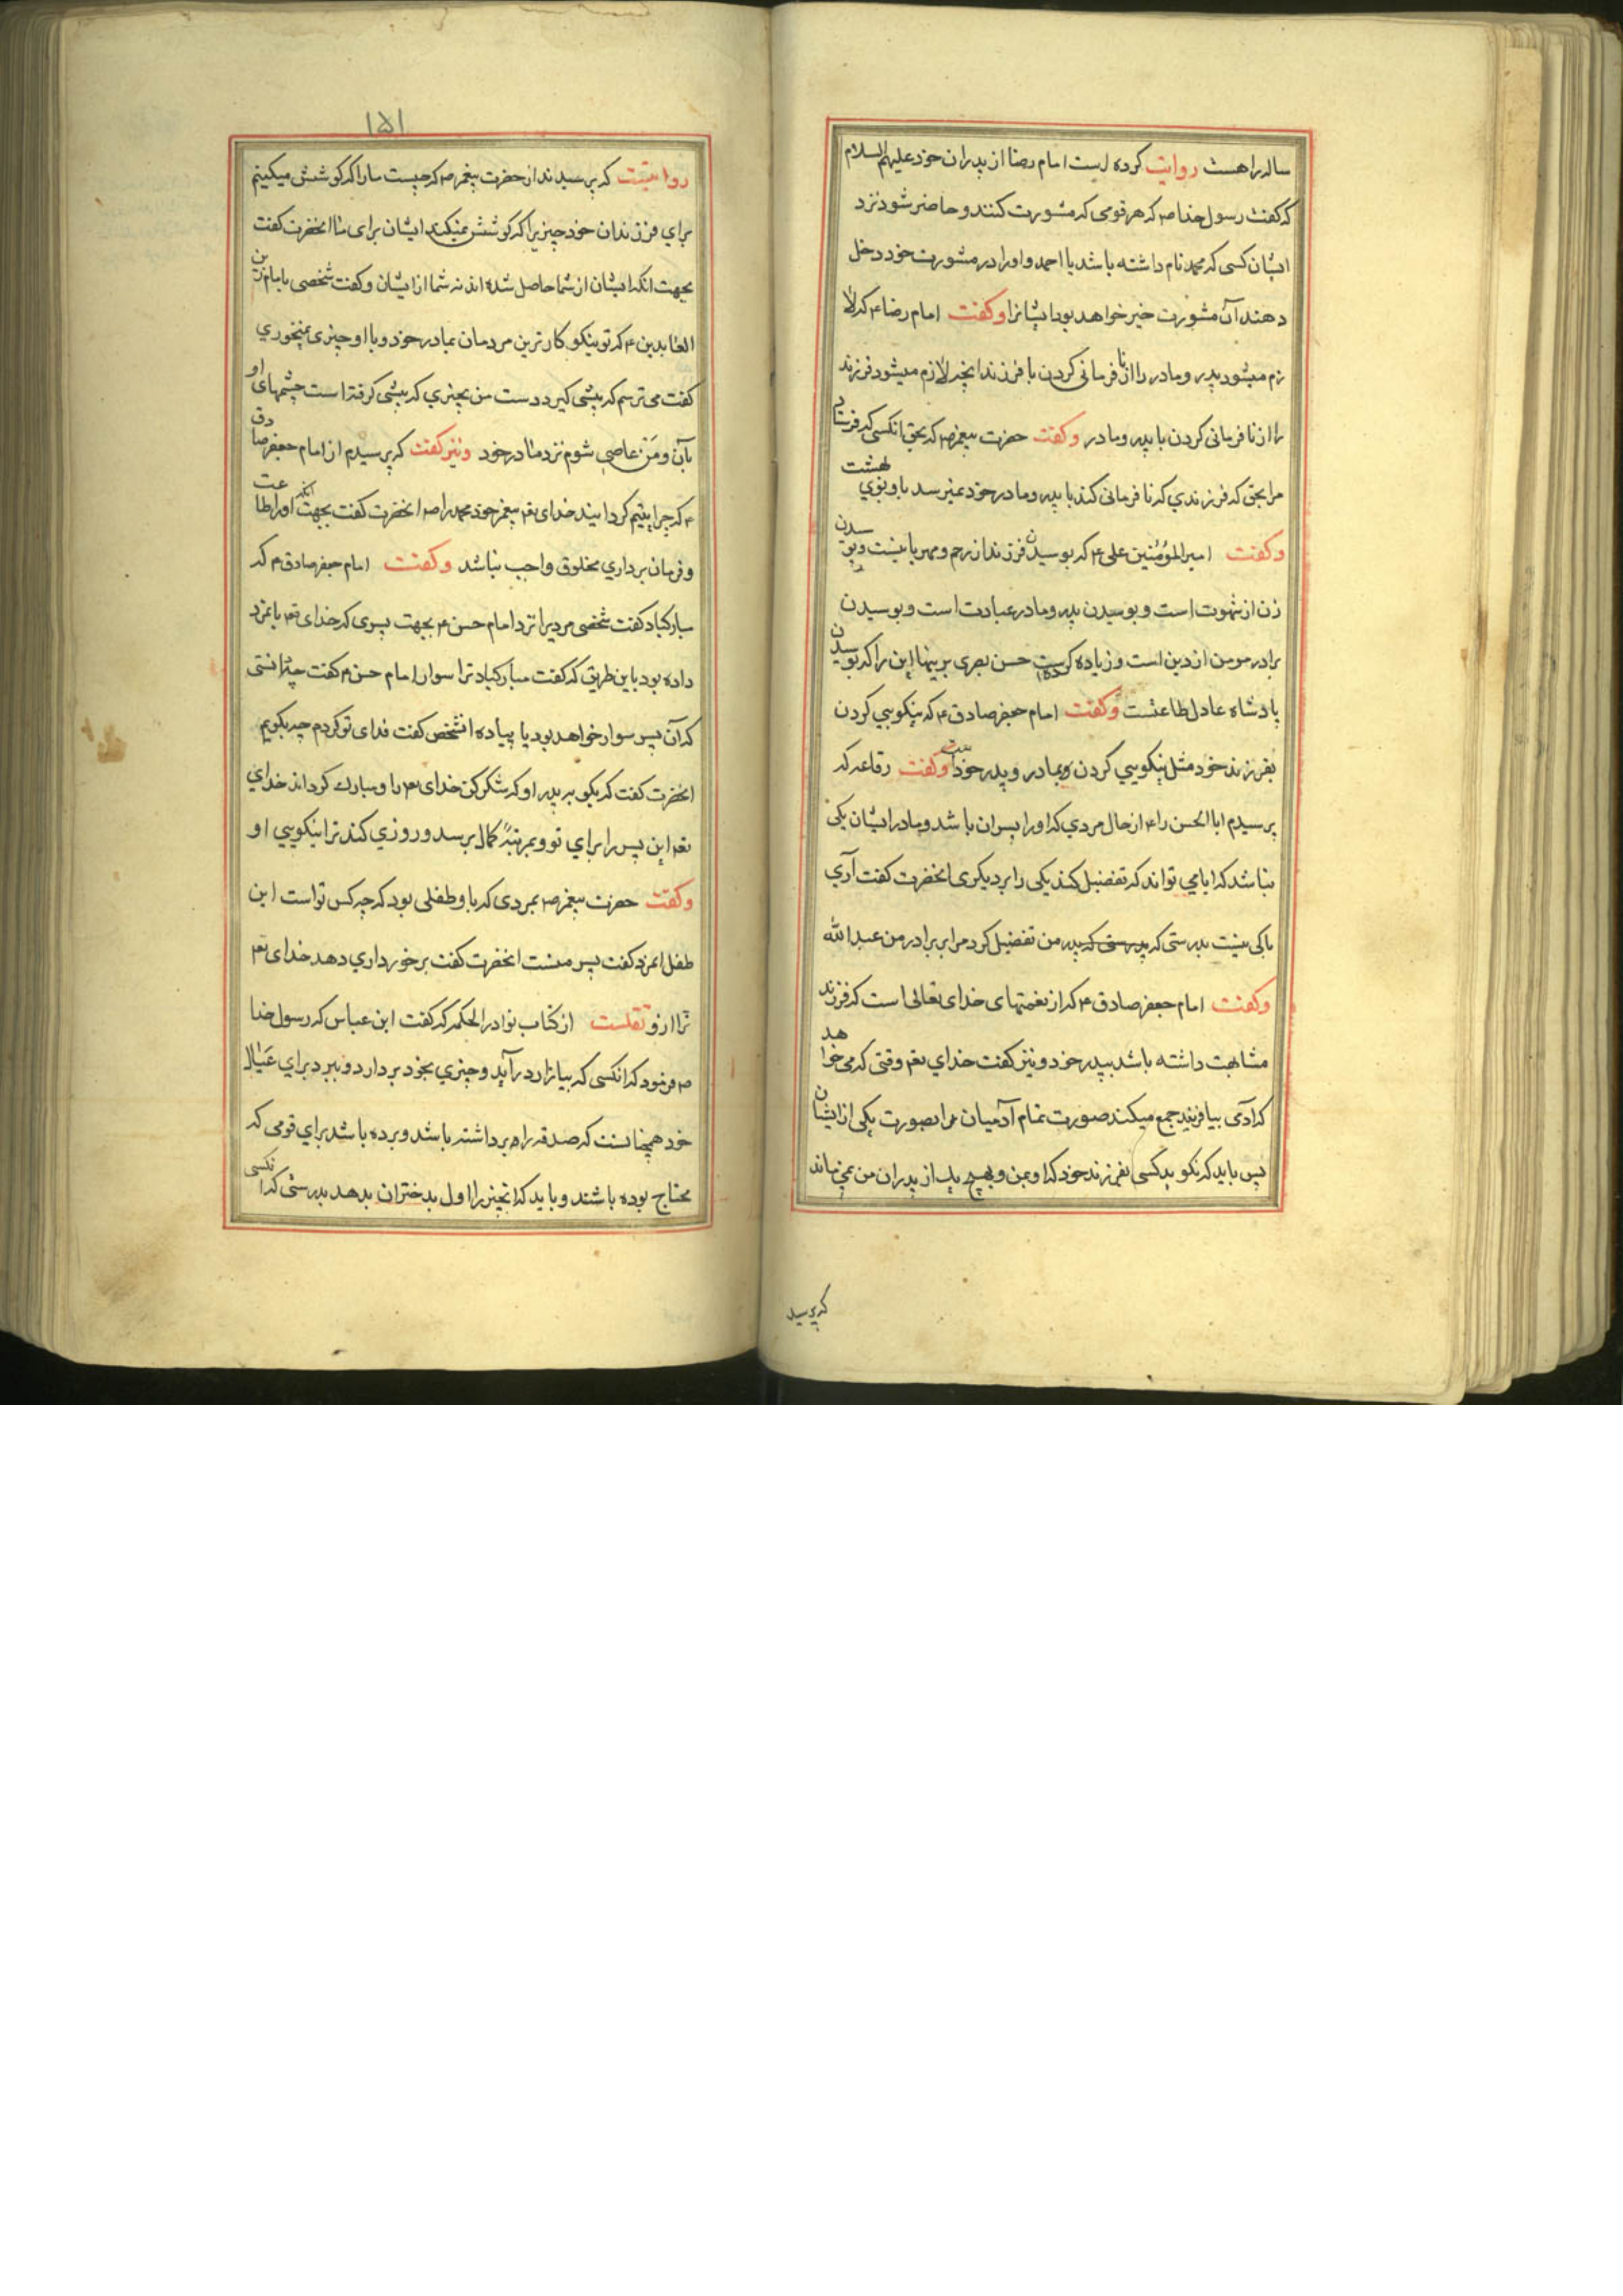 ساله را هست روایت کرده است امام رضا از پدران خود علیهم السلام
که گفت رسول خدا ص که هر قومی که مشورت کنند و حاضر شود نزد
ایشان کسی که محمد نام داشته باشد یا احمد و او را در مشورت خود دخل
دهند آن مشورت خیر خواهد بود ایشانرا وگفت امام رضا ع که لا
زم میشود پدر و مادر را از نا فرمانی کردن با فرزند انچه لازم میشود فرزند
را از نا فرمانی کردن با پدر و مادر وگفت حضرت پیغمبر ص که بحق انکسی که فرستاد
مرا بحق که فرزندی که نا فرمانی کند با پدر و مادر خود نمیرسد باو بوی بهشت
وگفت امیر المؤمنین علی ع که بوسیدن فرزند از رحم و مهربانیست و بوسیدن
زن از شهوت است و بوسیدن پدر و مادر عبادت است و بوسیدن
برادر مومن از دین است و زیاده کرده است حسن بصری برینها این را که بوسیدن
پادشاه عادل طاعتست وگفت امام جعفر صادق ع که نیکویی کردن
بفرزند خود مثل نیکویی کردن بمادر و پدر خود است وگفت رقاعه که
پرسیدم ابا الحسن را ع از حال مردی که او را پسران باشد و مادر ایشان یکی
نباشد که ایا می تواند که تفضیل کند یکی را بر دیگری انحضرت گفت آری
باکی نیست بدرستی که بدرستی که پدر من تفضیل کرد مرا بر برادر من عبد الله
وگفت امام جعفر صادق ع که از نعمتهای خدای تعالی است که فرزند
مشابهت داشته باشد بپدر خود و نیز گفت خدای تعم وقتی که می خواهد
که ادمی بیافریند جمع میکند صورت تمام آدمیان مرا بصورت یکی از ایشان
پس باید که نگوید کسی بفرزند خود که او بمن و بهیچ یک از پدران من نمی ماند
که پرسید
۱۵۱
روایتست که پرسیدند از حضرت پیغمبر ص که چیست ما را که کوشش میکنیم
برای فرزندان خود چیزیرا که کوشش نمیکند ایشان برای ما انحضرت گفت
بجهت انکه ایشان از شما حاصل شده اند نه شما از ایشان وگفت شخصی بامام زین
العابدین ع که تو نیکو کار ترین مردمان بمادر خود و با او چیزی نمیخوری
گفت می ترسم که پیشی گیرد دست من بچیزی که پیشی گرفته است چشمهای او
بآن و من عاصی شوم نزد مادر خود ونیز گفت که پرسیدم از امام جعفر صادق
ع که چرا یتیم گردانید خدای تعم پیغمبر خود محمد را ص انحضرت گفت بجهت انکه او را طاعت
و فرمان برداری مخلوق واجب نباشد وگفت امام جعفر صادق ع که
مبارکباد گفت شخصی مردیرا نزد امام حسن ع بجهت پسری که خدای تعم بانمرد
داده بود باین طریق که گفت مبارکباد ترا سوار امام حسن ع گفت چه دانستی
که آن پسر سوار خواهد بود یا پیاده انشخص گفت فدای تو گردم چه بگویم
انحضرت گفت که بگو بر پدر او که شکر کن خدای تعم را و مبارک گرداند خدای
تعم این پسر را برای تو و بمرتبهٔ کمال برسد و روزی کند ترا نیکویی او
وگفت حضرت پیغمبر ص بمردی که با و طفلی بود که چه کس تو است این
طفل انمرد گفت پسر منست انحضرت گفت برخورداری دهد خدای تعم
ترا ازو نقلست از کتاب نوادر الحکمه که گفت ابن عباس که رسول خدا
ص فرمود که انکسی که ببازار در آید و چیزی بخود بردارد و ببرد برای عیال
خود همچنانست که صدقه را برداشته باشد و برده باشد برای قومی که
محتاج بوده باشند و باید که انچیز را اول بدختران بدهد بدرستی که انکسی